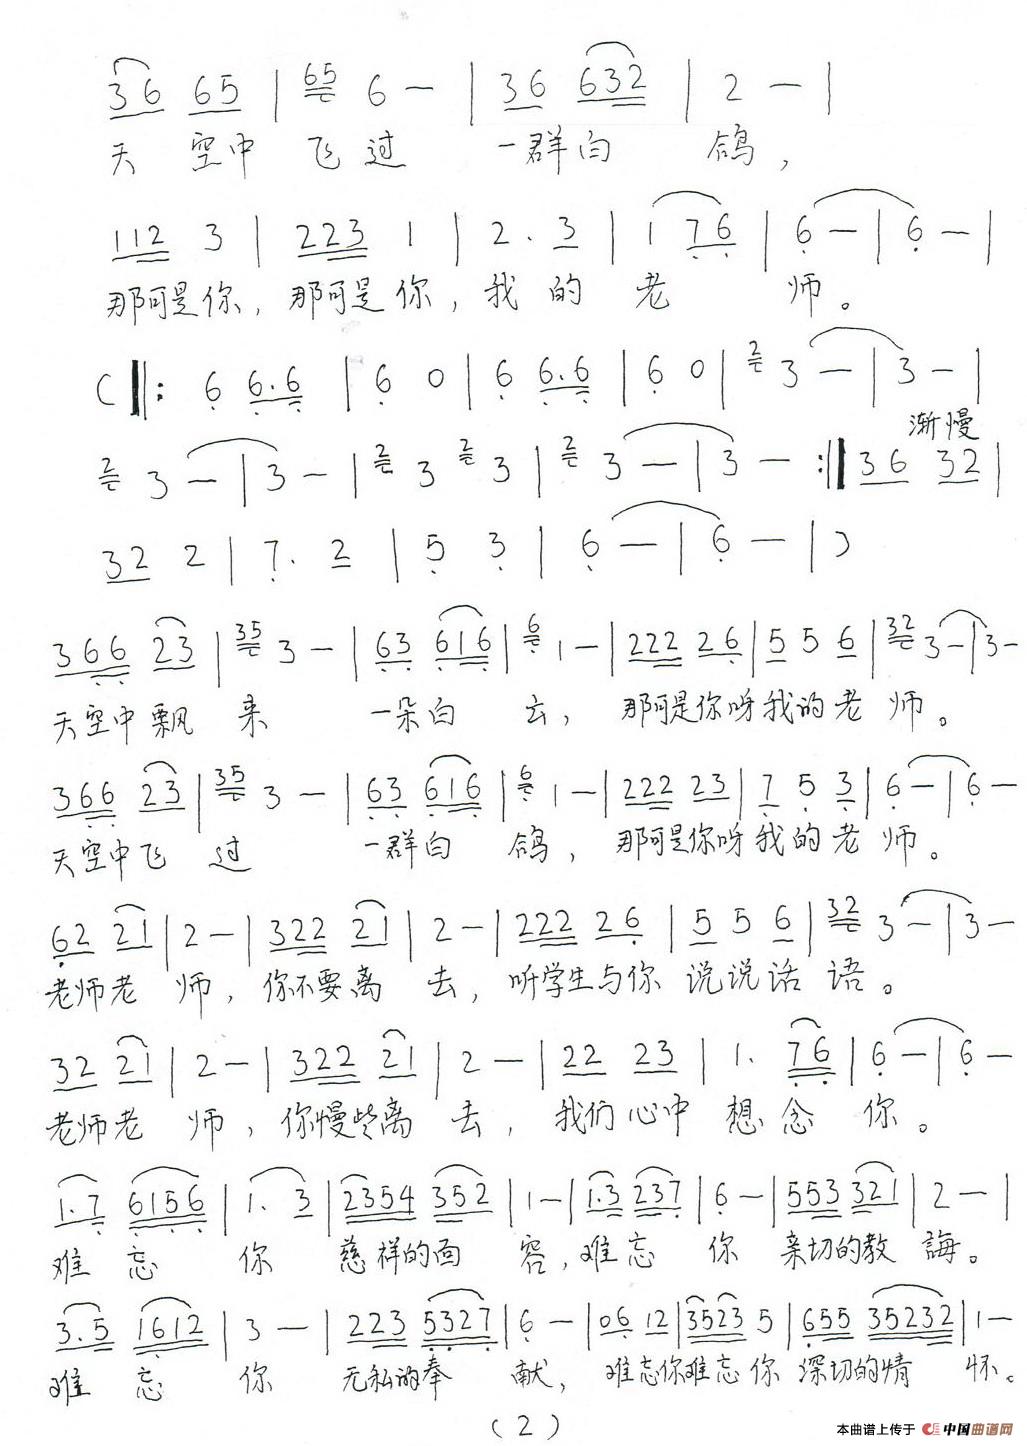 36 65 | 65 6 — | 36 632 | 2 — |
天 空中 飞过 一群白 鸽，
112 3 | 223 1 | 2 . 3 | 1 76 | 6 — | 6 — |
那可是你，那可是你，我的 老 师。
( ‖: 6 6.6 | 6 0 | 6 6.6 | 6 0 | 2 3 — | 3 — |
渐慢
2 3 — | 3 — | 2 3 2 3 | 2 3 — | 3 — :‖ 36 32 |
32 2 | 7 . 2 | 5 3 | 6 — | 6 — | )
366 23 | 35 3 — | 63 616 | 6 1 — | 222 26 | 5 5 6 | 32 3 — | 3 —
天空中飘 来 一朵白 云，那可是你呀我的老 师。
366 23 | 35 3 — | 63 616 | 6 1 — | 222 23 | 7 5 3 | 6 — | 6 —
天空中飞 过 一群白 鸽，那可是你呀我的老 师。
62 21 | 2 — | 322 21 | 2 — | 222 26 | 5 5 6 | 32 3 — | 3 —
老师老 师，你不要离 去，听学生与你 说说话 语。
32 21 | 2 — | 322 21 | 2 — | 22 23 | 1. 76 | 6 — | 6 —
老师老 师，你慢些离 去，我们心中 想 念 你。
1.7 6156 | 1. 3 | 2354 352 | 1 — | 1.3 237 | 6 — | 553 321 | 2 — |
难 忘 你 慈祥的面 容，难忘 你 亲切的教 誨。
3.5 1612 | 3 — | 223 5327 | 6 — | 06 12 | 3523 5 | 655 35232 | 1 —
难 忘 你 无私的奉 献，难忘你难忘你 深切的情 怀。
(2)
本曲谱上传于 中国曲谱网